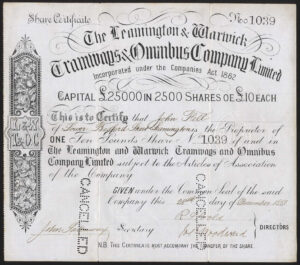 Share Certificate No 1039
The Leamington & Warwick
Tramways & Omnibus Company Limited
Incorporated under the Companies Act 1862
CAPITAL £25000 IN 2500 SHARES OF £10 EACH
This is to Certify that John Fell
of Leamington is the Proprietor of
ONE Ten Pounds Share No 1039 of and in
THE LEAMINGTON AND WARWICK TRAMWAYS AND OMNIBUS
COMPANY LIMITED subject to the Articles of Association
of the Company
GIVEN under the Common Seal of the said
Company this day of December
CANCELLED
CANCELLED
Secretary
DIRECTORS
N.B. THIS CERTIFICATE MUST ACCOMPANY THE TRANSFER OF THE SHARE
L & W
T & O C